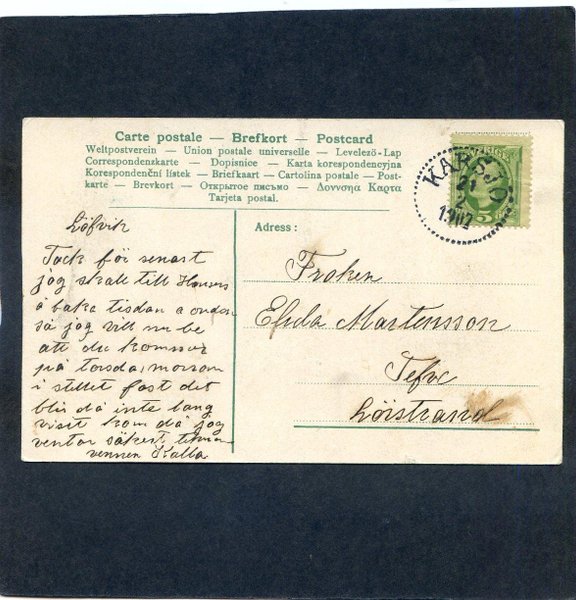 Carte postale — Brefkort — Postcard
Weltpostverein — Union postale universelle — Levelező-Lap
Correspondenzkarte — Dopisnice — Karta korespondencyjna
Korespondenční lístek — Briefkaart — Cartolina postale — Post-
karte — Brevkort — Открытое письмо — Δοννσηα Καρτα
Tarjeta postal.
KARSJÖ
21
2
SVERIGE
5
Löfvik
Tack för senast
jag skall till
å baka tisdan a
så jag vill nu be
att du kommer
på torsda, morson
i stellet fast det
blir då inte lang
visit kom då jag
ventar säkert
vennen Kalla
Adress :
Froken
Elida Martensson